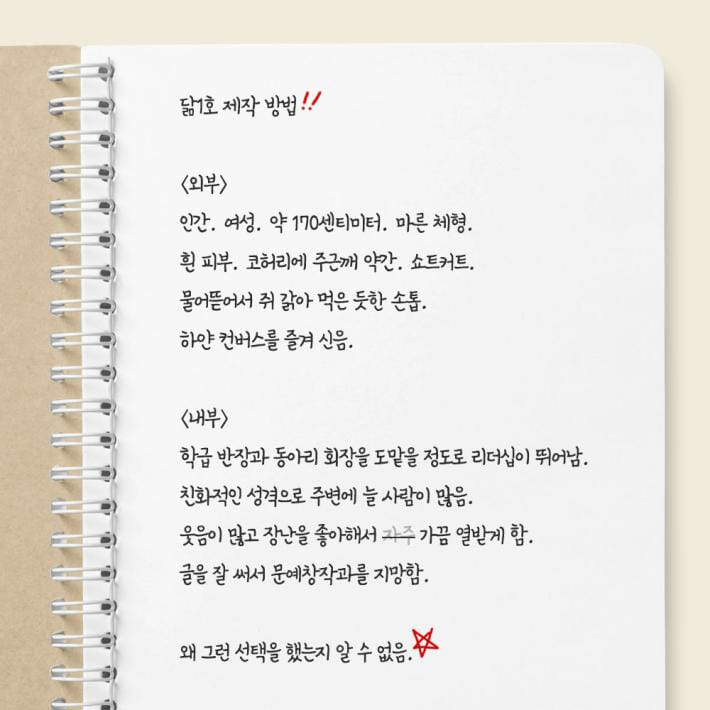 닮1호 제작 방법!!
<외부>
인간. 여성. 약 170센티미터. 마른 체형.
흰 피부. 코허리에 주근깨 약간. 쇼트커트.
물어뜯어서 쥐 갉아 먹은 듯한 손톱.
하얀 컨버스를 즐겨 신음.
<내부>
학급 반장과 동아리 회장을 도맡을 정도로 리더십이 뛰어남.
친화적인 성격으로 주변에 늘 사람이 많음.
웃음이 많고 장난을 좋아해서 자주 가끔 열받게 함.
글을 잘 써서 문예창작과를 지망함.
왜 그런 선택을 했는지 알 수 없음.